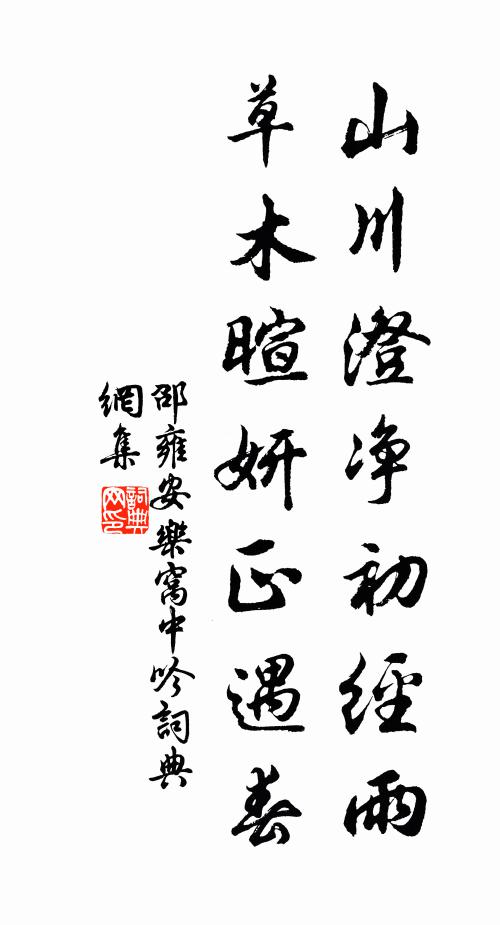 山川澄净初經雨
草木暄妍正遇春
邵雍安樂窩中吟詞典
網集
詞典網印